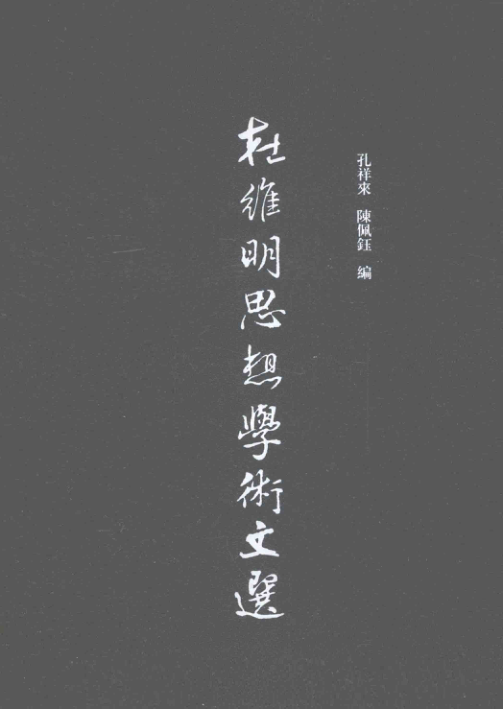 孔祥來 陳佩鈺 編
杜維明思想學術文選